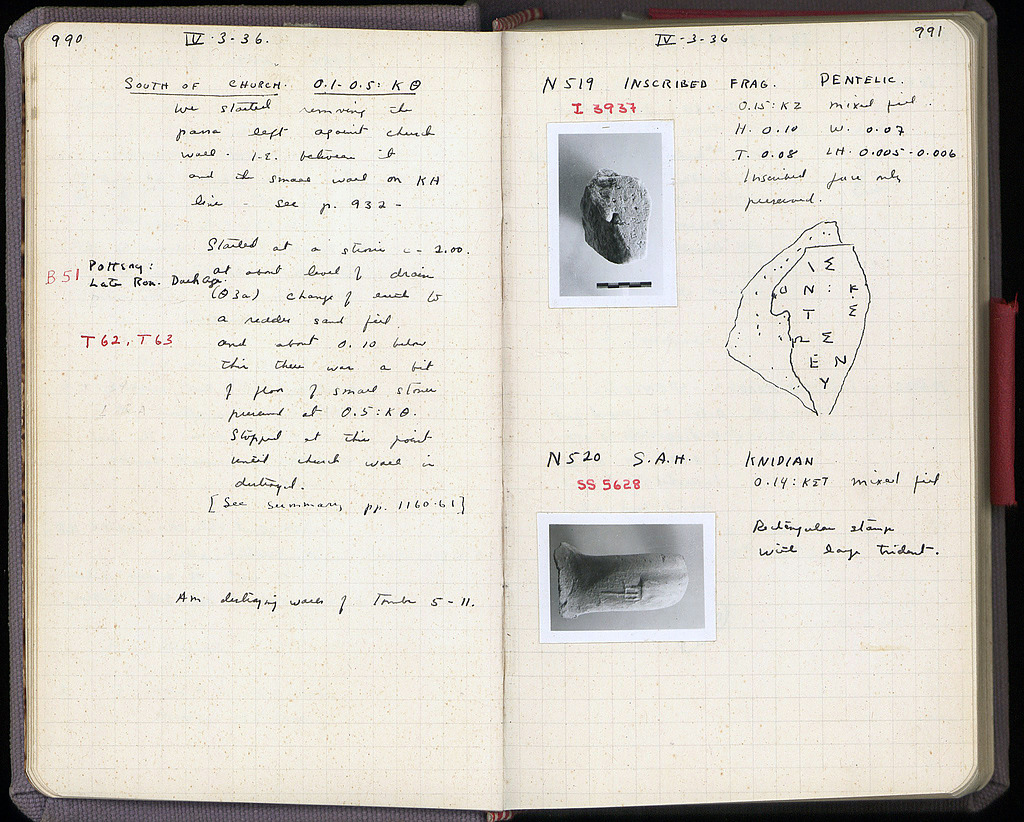 990
IV-3-36.
SOUTH OF CHURCH. 0.1-0.5: K Θ
We started removing the
passa left against church
wall. I.E. between it
and the small wall on KH
line - see p. 932 -
Started at a strosis c - 2.00.
B51 Pottery: at about level of drain
Late Rom. Dark age. (Θ3a) change of earth to
a redder sand fill.
T62, T63 and about 0.10 below
this there was a bit
of floor of small stones
preserved at 0.5: K Θ.
Stopped at this point
until church wall is
destroyed.
[See summary, pp. 1160-61]
Am destroying walls of Tombs 5-11.
IV-3-36
991
N 519 INSCRIBED FRAG. PENTELIC.
I 3937
0.15: KZ mixed fill.
H. 0.10 W. 0.07
T. 0.08 LH. 0.005-0.006
Inscribed face only
preserved.
Ι Σ
Ο Ν : Κ
Τ Ε
Σ
Ε Ν
Υ
N520 S.A.H. KNIDIAN
SS 5628
mixed fill
Rectangular stamp
with large trident.